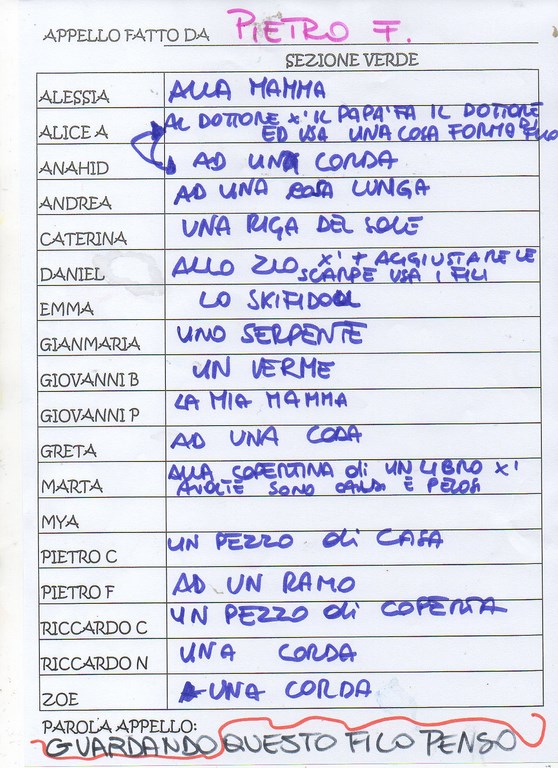 APPELLO FATTO DA PIETRO F.
SEZIONE VERDE
ALESSIA ALLA MAMMA
ALICE A AL DOTTORE X' IL PAPA' FA IL DOTTORE
ED USA UNA COSA FORMA DI FILO
ANAHID AD UNA CORDA
ANDREA AD UNA COSA LUNGA
CATERINA UNA RIGA DEL SOLE
DANIEL ALLO ZIO X' + AGGIUSTARE LE
SCARPE USA I FILI
EMMA LO SKIFIDOL
GIANMARIA UNO SERPENTE
GIOVANNI B UN VERME
GIOVANNI P LA MIA MAMMA
GRETA AD UNA CODA
MARTA ALLA COPERTINA di UN LIBRO X'
AVOLTE SONO CALDI E PELOSI
MYA
PIETRO C UN PEZZO di CASA
PIETRO F AD UN RAMO
RICCARDO C UN PEZZO di COPERTA
RICCARDO N UNA CORDA
ZOE A UNA CORDA
PAROLA APPELLO:
GUARDANDO QUESTO FILO PENSO